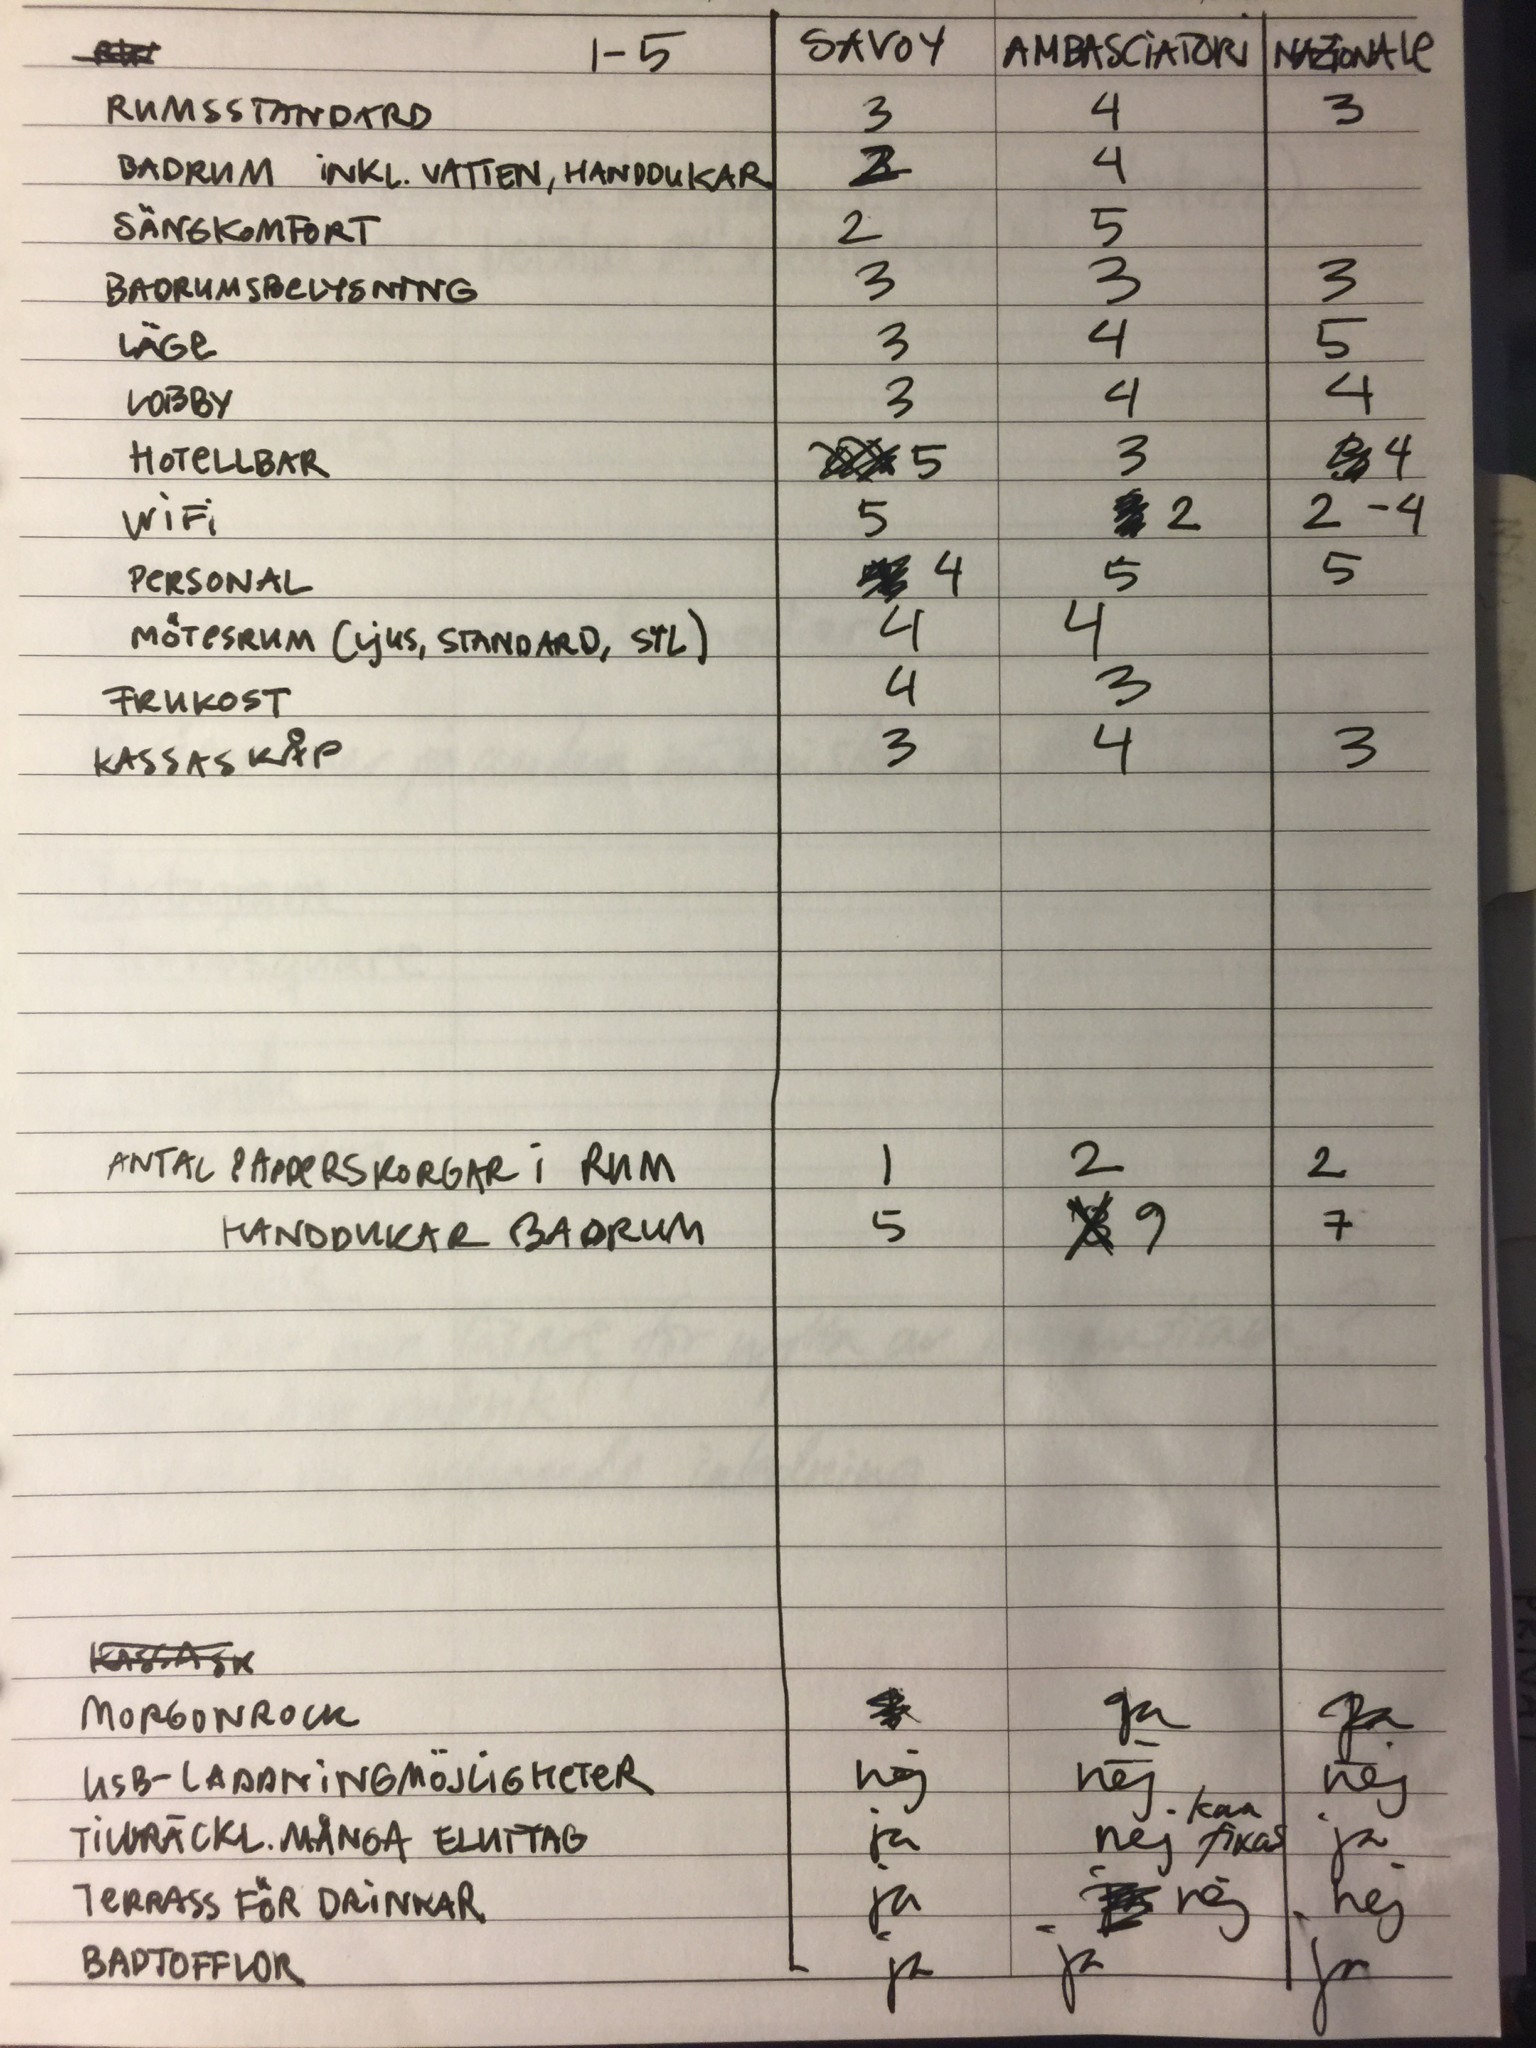 1-5 SAVOY AMBASCIATORI NAZIONALE
RUMSSTANDARD 3 4 3
BADRUM INKL. VATTEN, HANDDUKAR 2 4
SÄNGKOMFORT 2 5
BADRUMSBELYSNING 3 3 3
LÄGE 3 4 5
LOBBY 3 4 4
HOTELLBAR 5 3 4
WIFI 5 2 2-4
PERSONAL 4 5 5
MÖTESRUM (LJUS, STANDARD, STL) 4 4
FRUKOST 4 3
KASSASKÅP 3 4 3
ANTAL PAPPERSKORGAR I RUM 1 2 2
HANDDUKAR BADRUM 5 9 7
KASSASK
MORGONROCK ja ja
USB-LADDNINGMÖJLIGHETER nej nej nej
TILLRÄCKL. MÅNGA ELUTTAG ja nej kan fixas ja
TERRASS FÖR DRINKAR ja nej nej
BADTOFFLOR ja ja ja